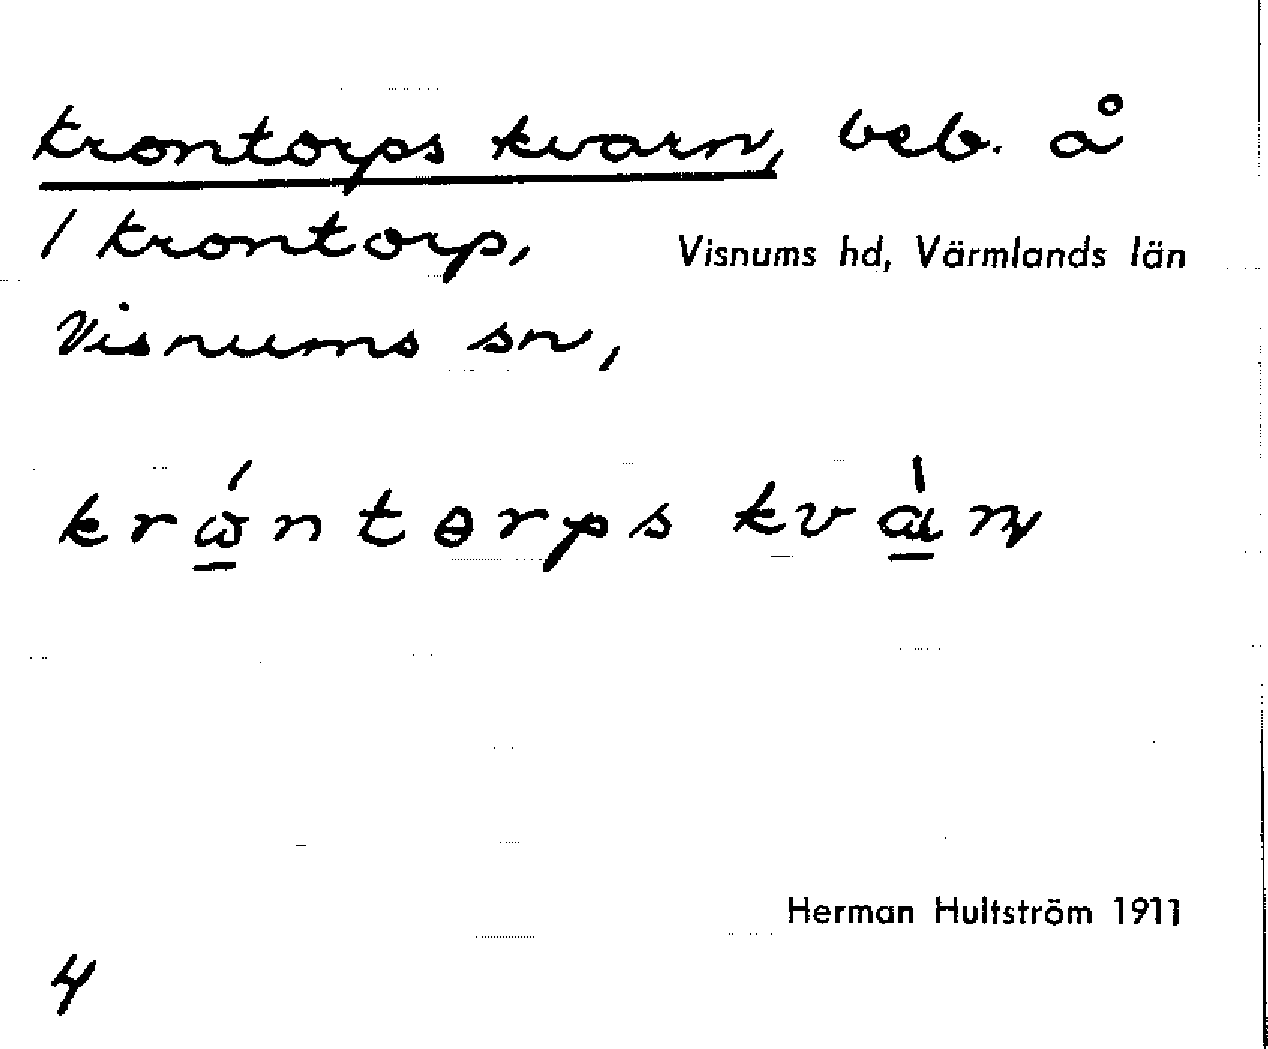 Krontorps kvarn, beb. å
1 Krontorp,
Visnums hd, Värmlands län
Visnums sn,
krώ̲ntɵrps kvὰ̲ɳ
Herman Hultström 1911
4